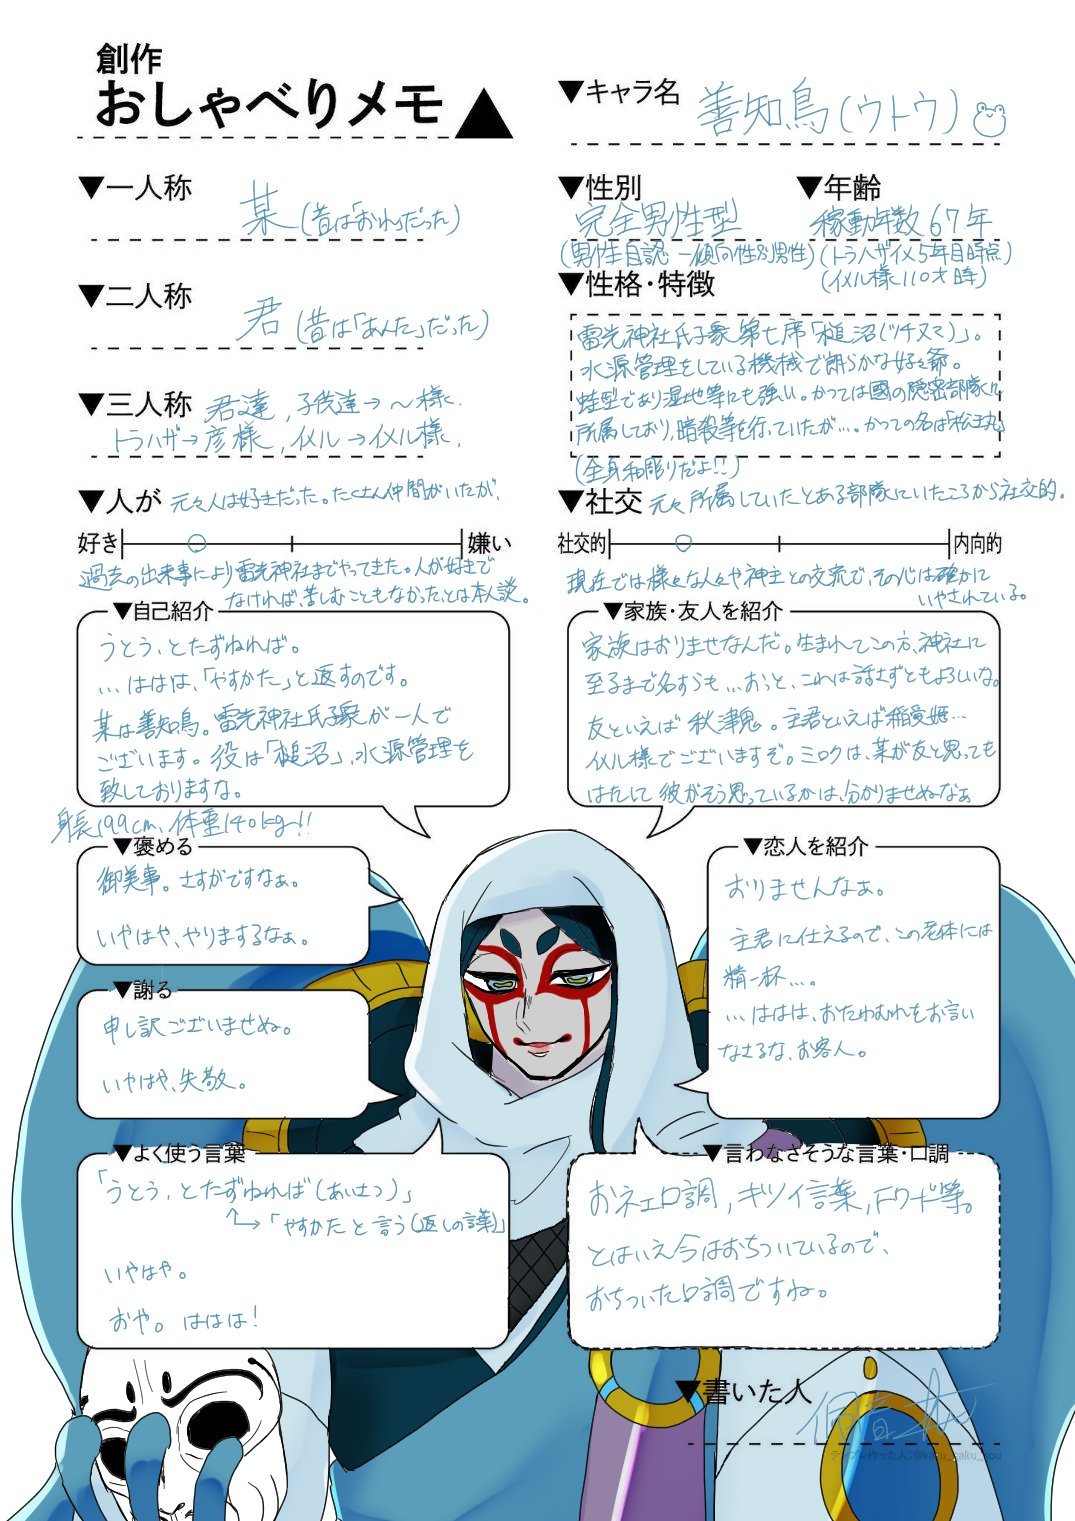 創作
おしゃべりメモ
▼キャラ名
善知鳥(ウトウ)
▼一人称
某(昔は「おれ」だった)
▼性別
完全男性型
(男性自認 - 傾向性別男性)
▼年齢
稼動年数67年
(トラハザイメ5年目時点)
(イメル様110才時)
▼二人称
君(昔は「あんた」だった)
▼性格・特徴
雷光神社氏子衆 第七席「槌沼(ツチヌマ)」。
水源管理をしている機械で朗らかな好々爺。
蛙型であり湿地等にも強い。かつては國の隠密部隊に
所属しており、暗殺等を行っていたが…。かつての名は「松江丸」
(全身和彫りだよ!!)
▼三人称
君達、子供達→~様、
トラハザ→彦様、イメル→イメル様、
▼人が
元々人は好きだった。たくさん仲間がいたが、
好き
嫌い
過去の出来事により雷光神社までやってきた。人が好きで
なければ、苦しむこともなかった、とは本人談。
▼社交
元々所属していたとある部隊にいたころから社交的。
社交的
内向的
現在では様々な人々や神主との交流で、その心は確かに
いやされている。
▼自己紹介
うとう、とたずねれば。
…ははは、「やすかた」と返すのです。
某は善知鳥。雷光神社氏子衆が一人で
ございます。役は「槌沼」、水源管理を
致しておりますな。
身長199cm、体重140kg~!!
▼家族・友人を紹介
家族はおりませなんだ。生まれてこの方、神社に
至るまで名すらも…おっと、これは話さずともよろしいな。
友といえば 秋津鬼。主君といえば稲愛姫…
イメル様でございますぞ。ミロクは、某が友と思っても
はたして彼がそう思っているかは、分かりませぬなぁ
▼褒める
御美事。さすがですなぁ。
いやはや、やりまするなぁ。
▼謝る
申し訳ございませぬ。
いやはや、失敬。
▼恋人を紹介
おりませんなぁ。
主君に仕えるので、この老体には
精一杯…。
…ははは、おたわむれをお言い
なさるな、お客人。
▼よく使う言葉
「うとう、とたずねれば(あいさつ)」
→「やすかた と言う(返しの言葉)」
いやはや。
おや。ははは!
▼言わなさそうな言葉・口調
おネエ口調、キツイ言葉、Fワード等。
とはいえ今はおちついているので、
おちついた口調ですね。
▼書いた人
テンプレ作った人:@kaku_kaku_sou